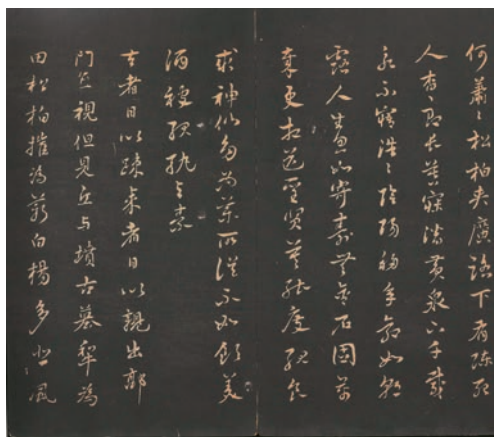 何蕭〻松柏夾廣路下有陳死
人杳〻即長暮寐潛黃泉下千載
永不寤浩〻陰陽移年命如朝
露人生忽如寄壽無金石固萬
歲更相送聖賢莫能度服食
求神仙多為藥所誤不如飲美
酒被服紈与素
去者日以疎來者日以親出郭
門直視但見丘与墳古墓犁為
田松柏摧為薪白楊多悲風